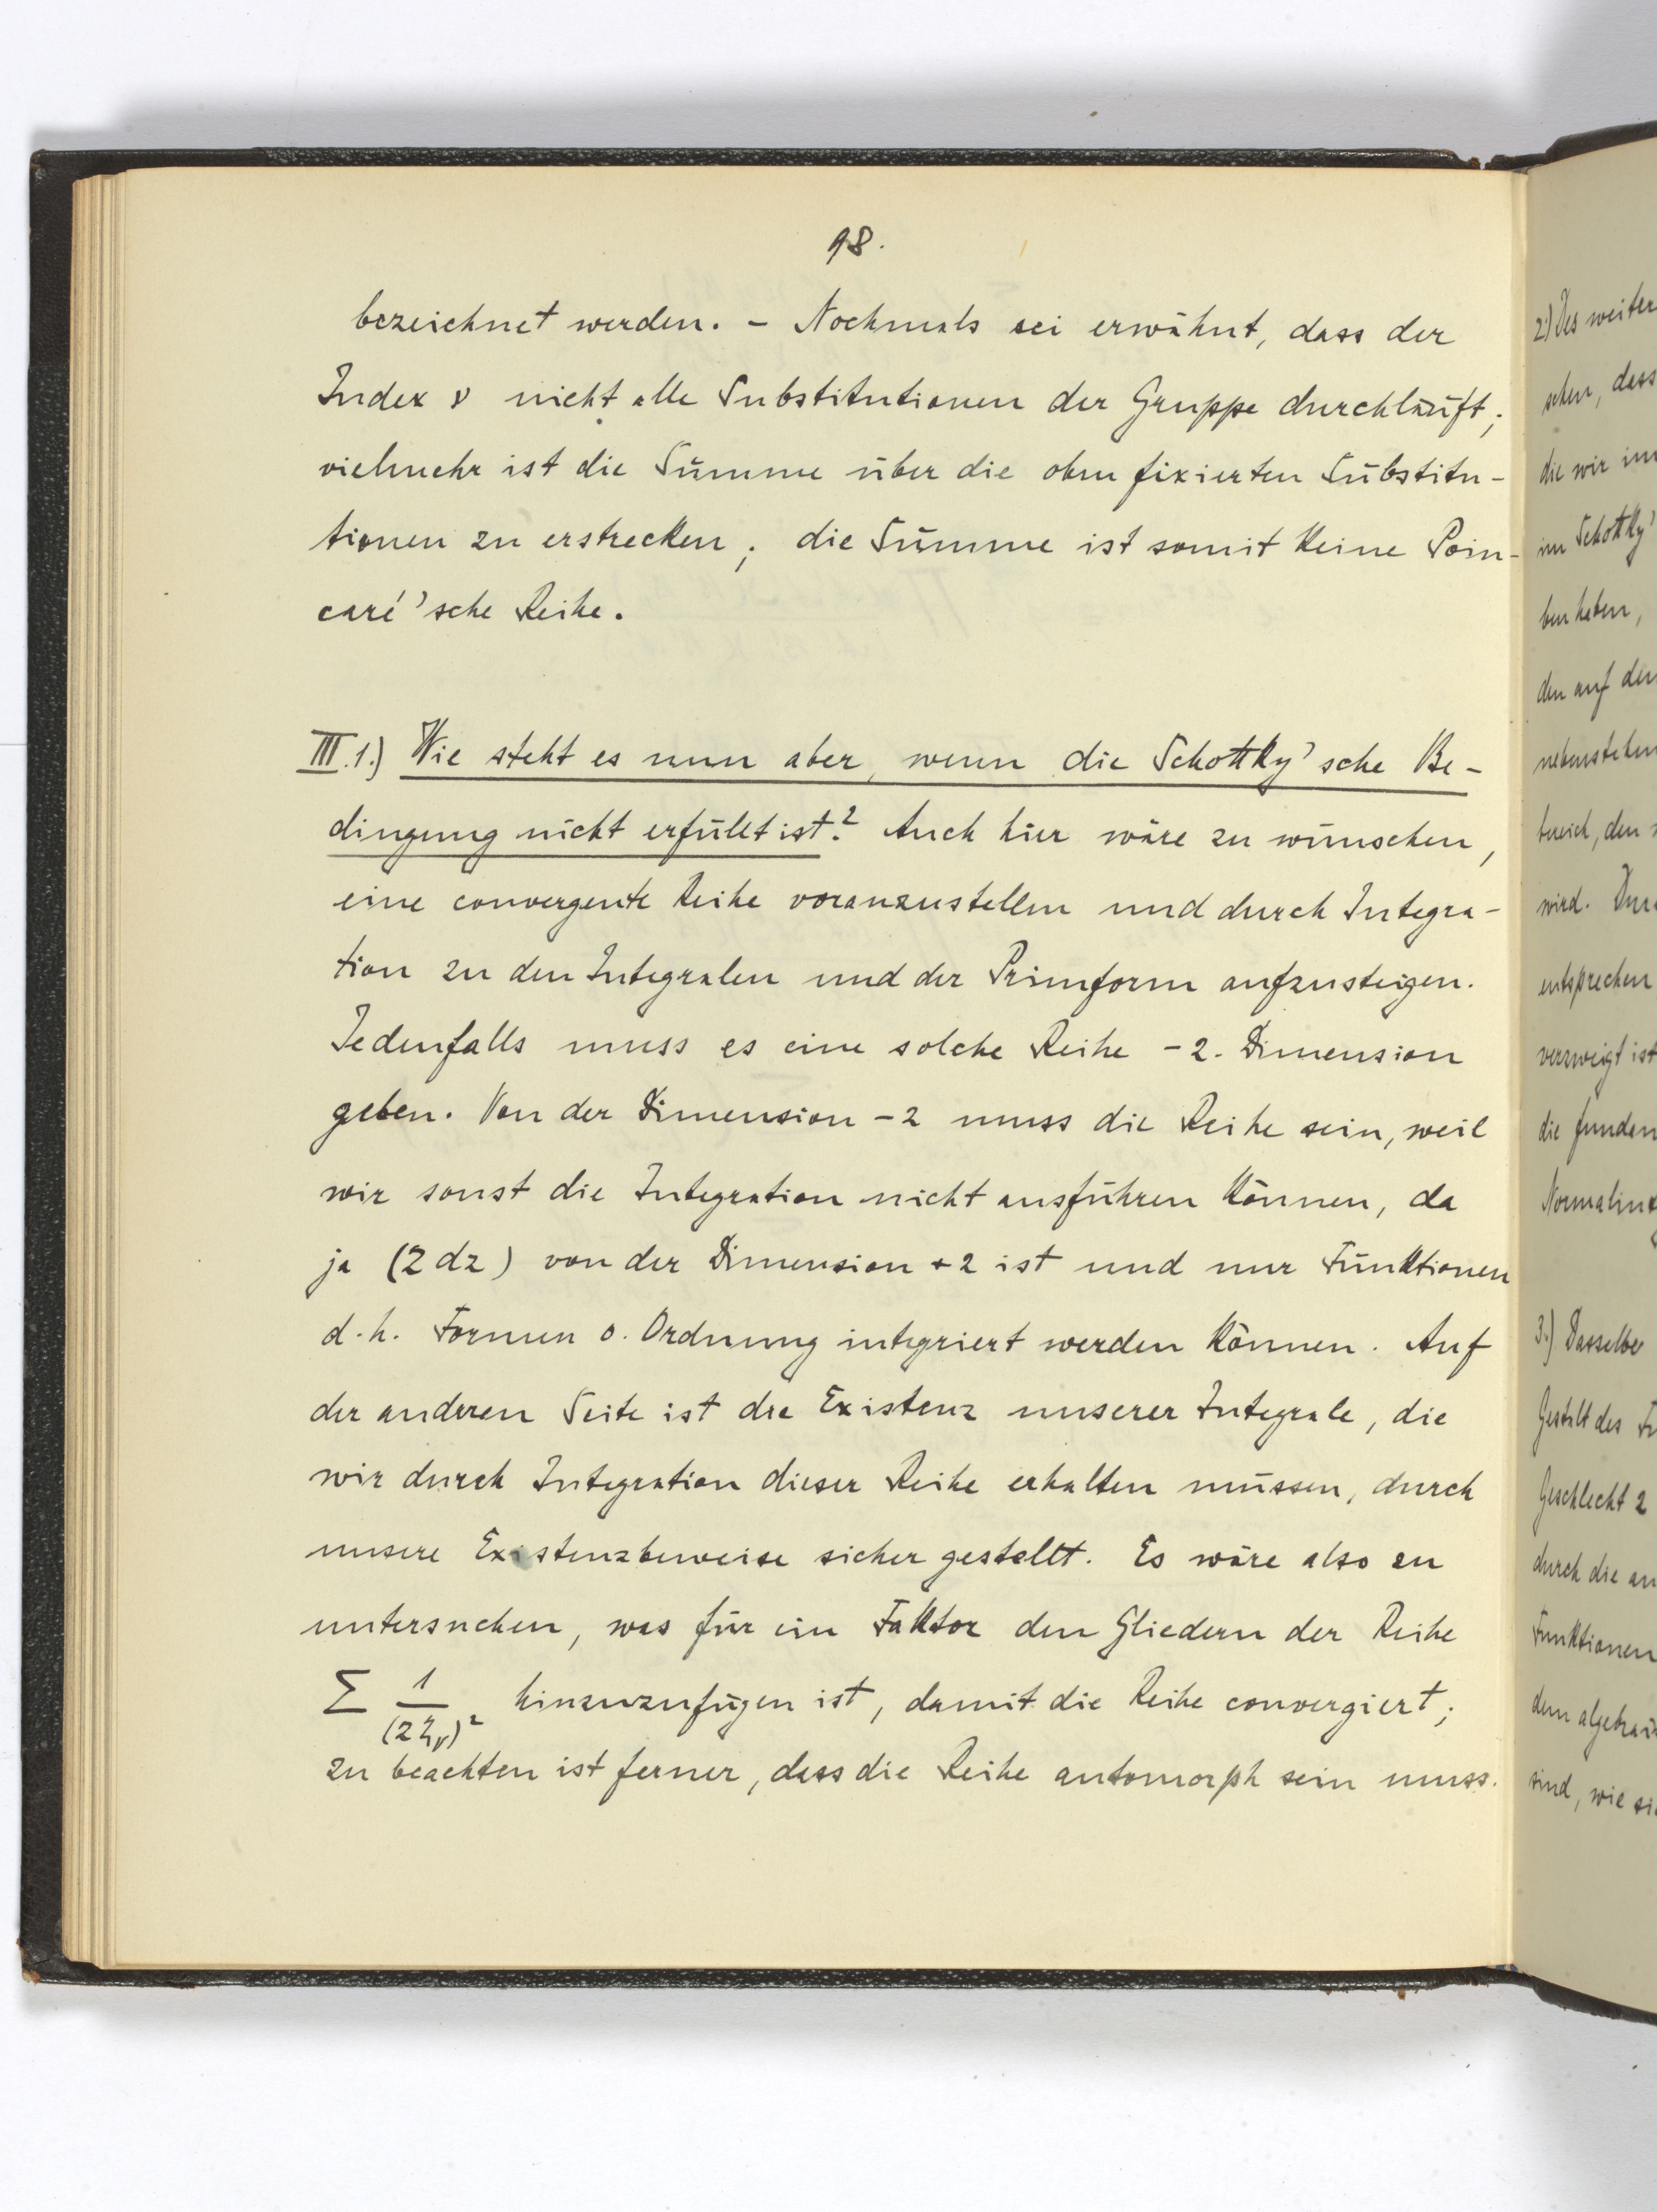 98.
bezeichnet werden. – Nochmals sei erwähnt, dass der
Index ν nicht alle Substitutionen der Gruppe durchläuft;
vielmehr ist die Summe über die oben fixierten Substitu-
tionen zu erstrecken; die Summe ist somit keine Poin-
caré'sche Reihe.
III.1.) Wie steht es nun aber, wenn die Schottky'sche Be-
dingung nicht erfüllt ist? Auch hier wäre zu wünschen,
eine convergente Reihe voranzustellen und durch Integra-
tion zu den Integralen und der Primform aufzusteigen.
Jedenfalls muss es eine solche Reihe -2. Dimension
geben. Von der Dimension -2 muss die Reihe sein, weil
wir sonst die Integration nicht ausführen können, da
ja (z dz) von der Dimension +2 ist und nur Funktionen
d.h. Formen 0. Ordnung integriert werden können. Auf
der anderen Seite ist die Existenz unserer Integrale, die
wir durch Integration dieser Reihe erhalten müssen, durch
unsere Existenzbeweise sicher gestellt. Es wäre also zu
untersuchen, was für ein Faktor den Gliedern der Reihe
Σ 1/(z ζν)² hinzuzufügen ist, damit die Reihe convergiert;
zu beachten ist ferner, dass die Reihe automorph sein muss.
2.) Des weiter
sehen, dass
die wir im
im Schottky'
ben haben,
den auf den
nebenstehen
bereich, den
wird.
entsprechen
verzweigt ist
die funda
3.) Dasselbe
Gestalt des
Geschlecht 2
durch die an
Funktionen
dem algebrai
sind, wie si